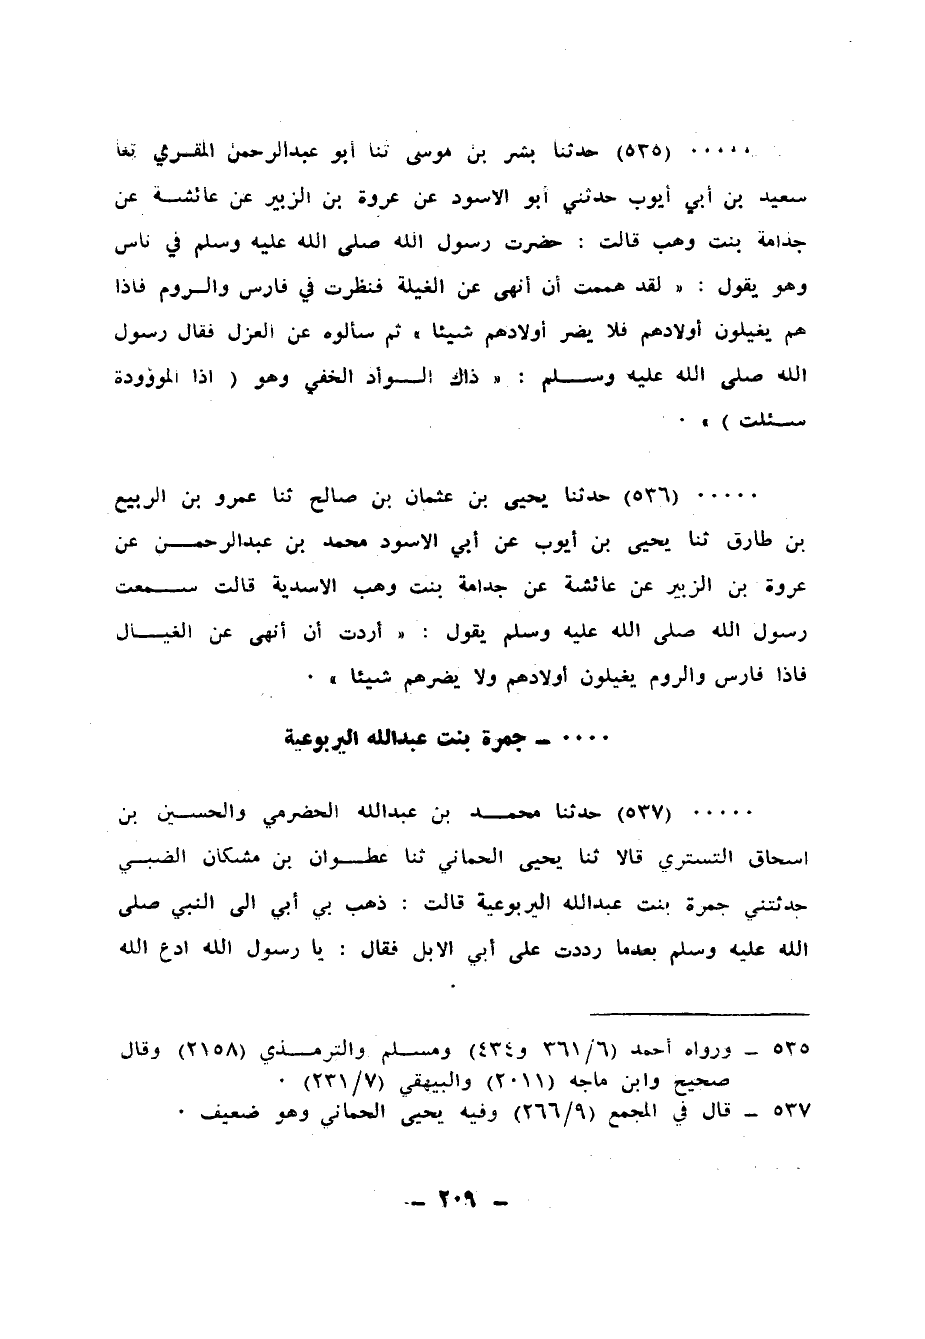 ..... (٥٣٥) حدثنا بشر بن موسى ثنا أبو عبدالرحمن المقـري ثنا
سعيد بن أبي أيوب حدثني أبو الاسود عن عروة بن الزبير عن عائشـة عن
جذامة بنت وهب قالت : حضرت رسول الله صلى الله عليه وسلم في ناس
وهو يقول : « لقد هممت أن أنهى عن الغيلة فنظرت في فارس والـروم فاذا
هم يغيلون أولادهم فلا يضر أولادهم شيئا » ثم سألوه عن العزل فقال رسول
الله صلى الله عليه وسـلم : « ذاك الـوأد الخفي وهو ( اذا الموؤودة
سـئلت ) » .
..... (٥٣٦) حدثنا يحيى بن عثمان بن صالح ثنا عمرو بن الربيع
بن طارق ثنا يحيى بن أيوب عن أبي الاسود محمد بن عبدالرحمـن عن
عروة بن الزبير عن عائشة عن جدامة بنت وهب الاسدية قالت سـمعت
رسول الله صلى الله عليه وسلم يقول : « أردت أن أنهى عن الغيـال
فاذا فارس والروم يغيلون أولادهم ولا يضرهم شيئا » .
.... ــ جمرة بنت عبدالله اليربوعية
..... (٥٣٧) حدثنا محمـد بن عبدالله الحضرمي والحسـين بن
اسحاق التستري قالا ثنا يحيى الحماني ثنا عطـوان بن مشكان الضبـي
حدثتني جمرة بنت عبدالله اليربوعية قالت : ذهب بي أبي الى النبي صلى
الله عليه وسلم بعدما رددت على أبي الابل فقال : يا رسول الله ادع الله
٥٣٥ ــ ورواه أحمد (٣٦١/٦ و٤٣٤) ومسـلم والترمـذي (٢١٥٨) وقال
صحيح وابن ماجه (٢٠١١) والبيهقي (٢٣١/٧) .
٥٣٧ ــ قال في المجمع (٢٦٦/٩) وفيه يحيى الحماني وهو ضعيف .
ــ ٢٠٩ ــ